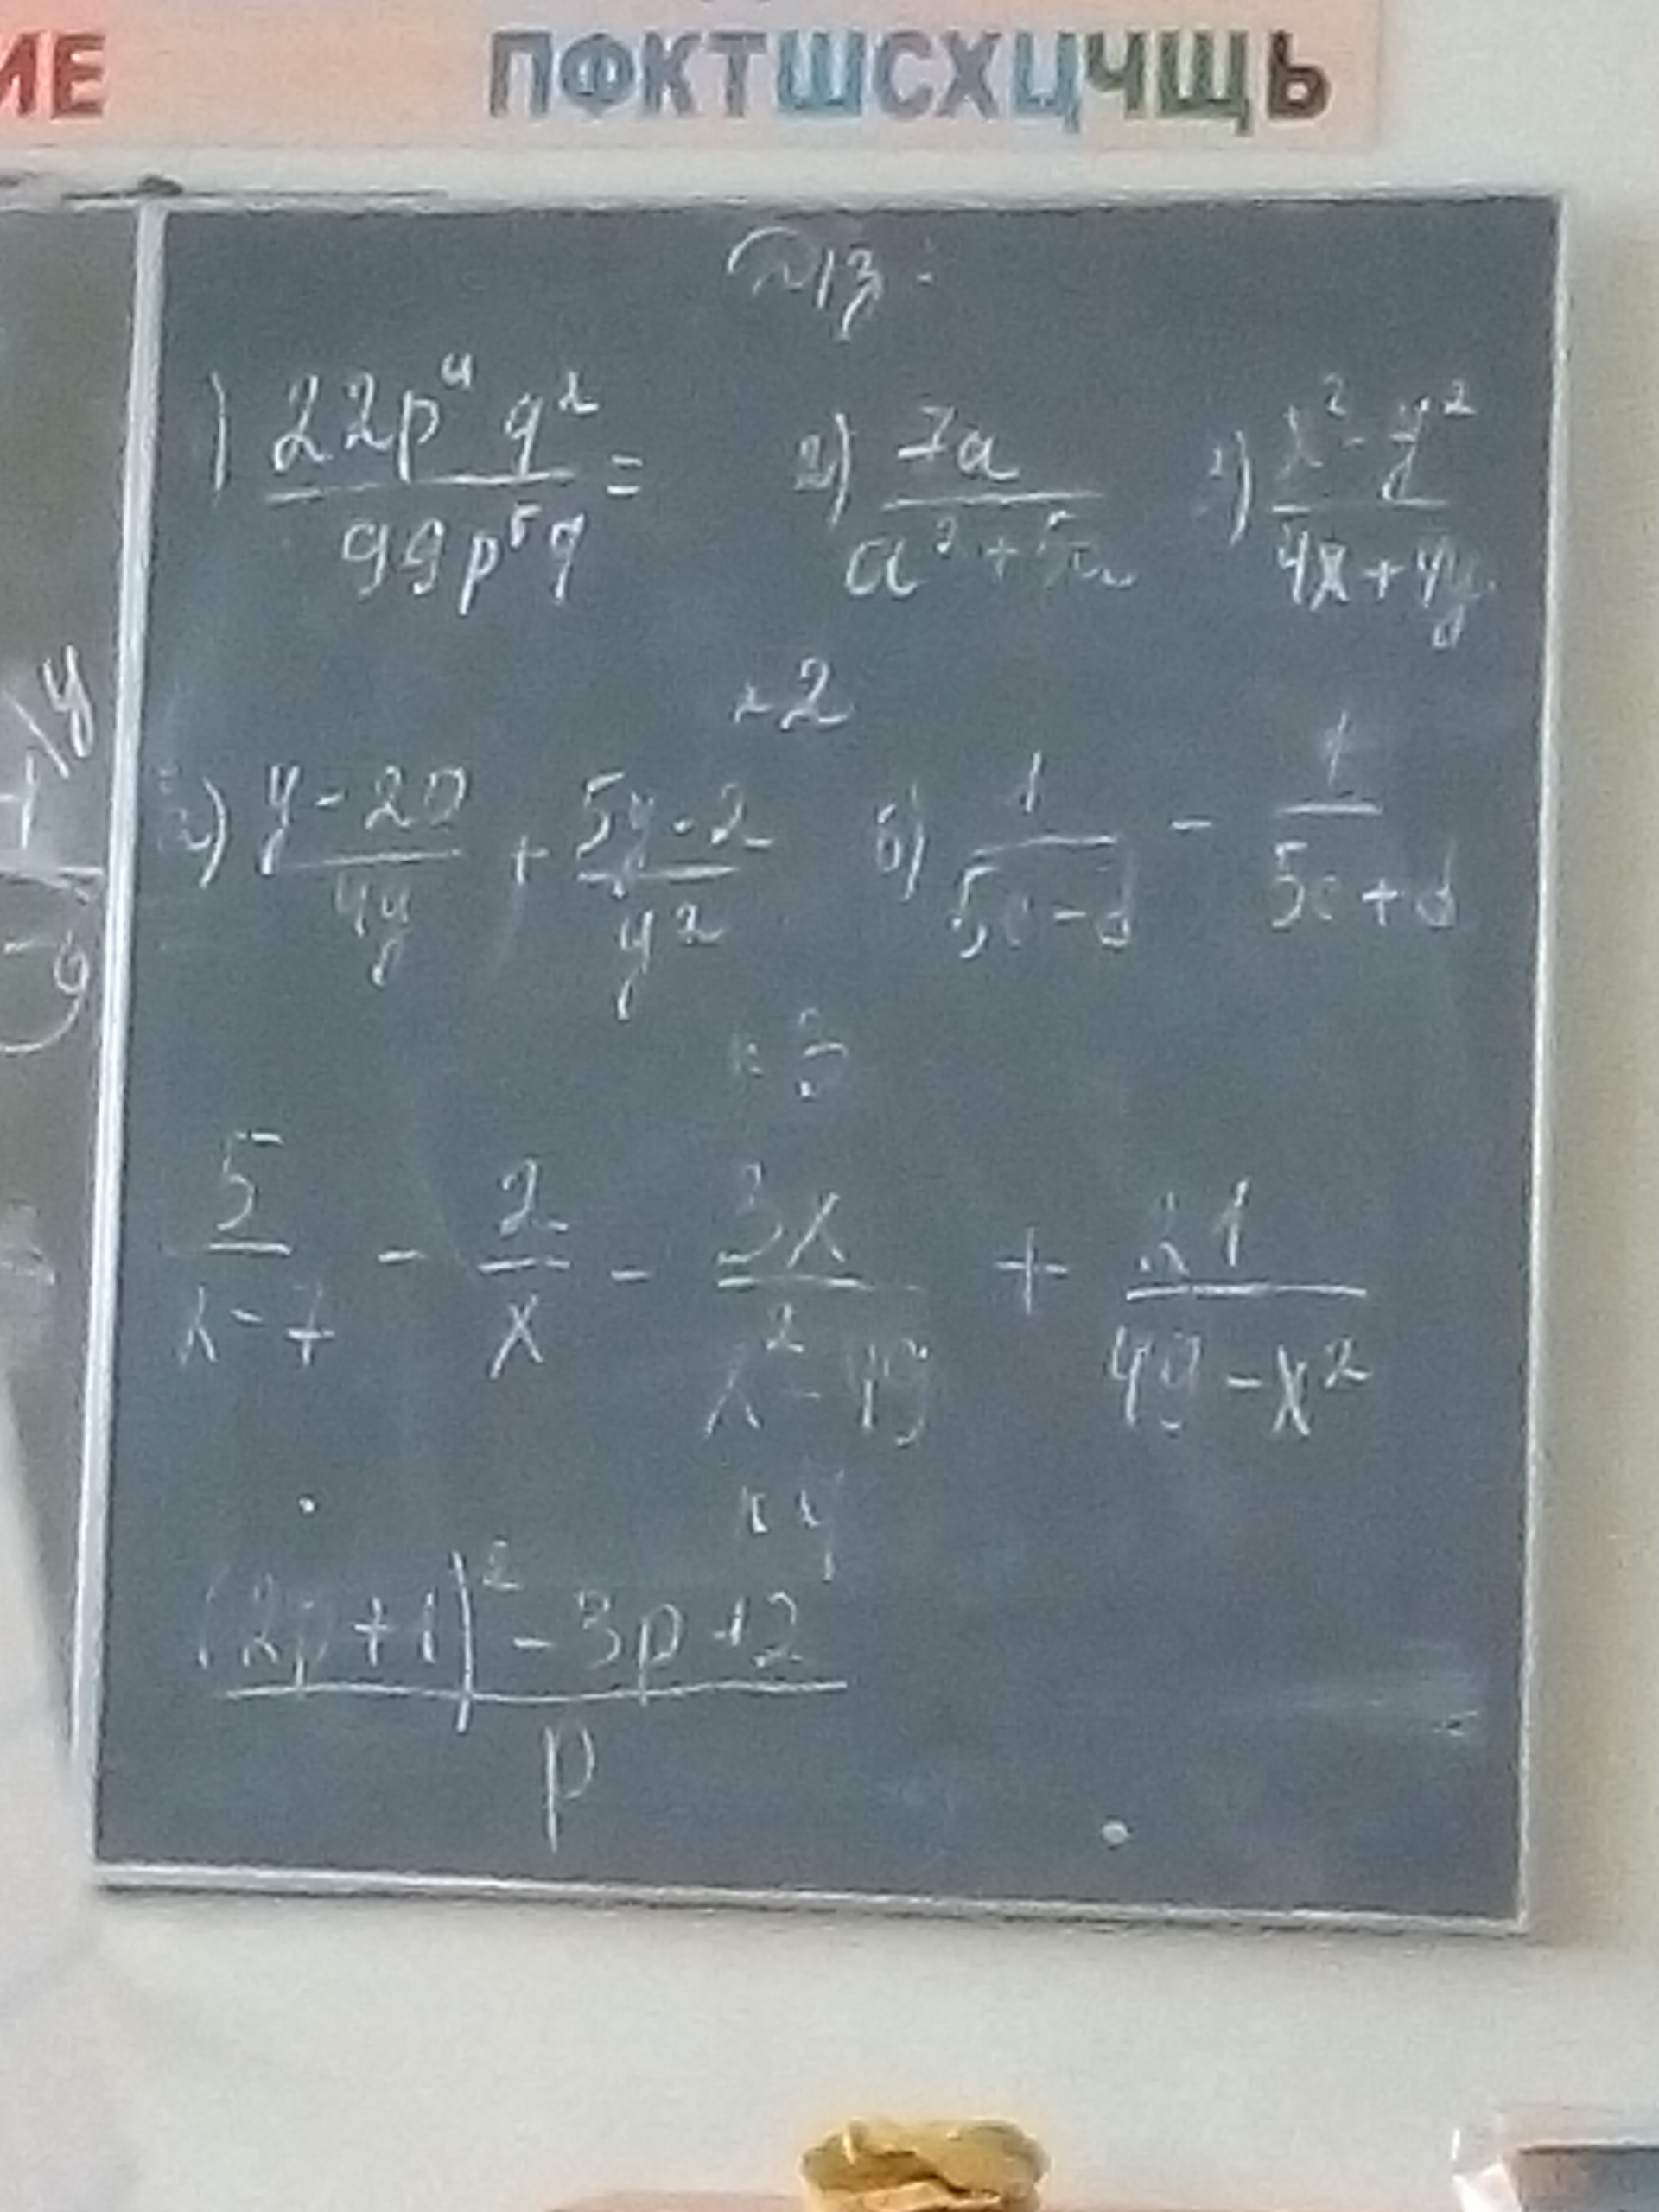 ИЕ ПФКТШСХЦЧЩЬ
1) \frac{22p^4 q^2}{99p^5 q} = 2) \frac{7a}{a^2 + 5a} \frac{x^2 - y^2}{4x + 4y}
2
\frac{y - 20}{4y} + \frac{5y - 2}{y^2} б) \frac{1}{5c - d} - \frac{1}{5c + d}
3
\frac{5}{x - 7} - \frac{2}{x} - \frac{3x}{x^2 - 49} + \frac{21}{49 - x^2}
4
\frac{(2p + 1)^2 - 3p + 2}{p}